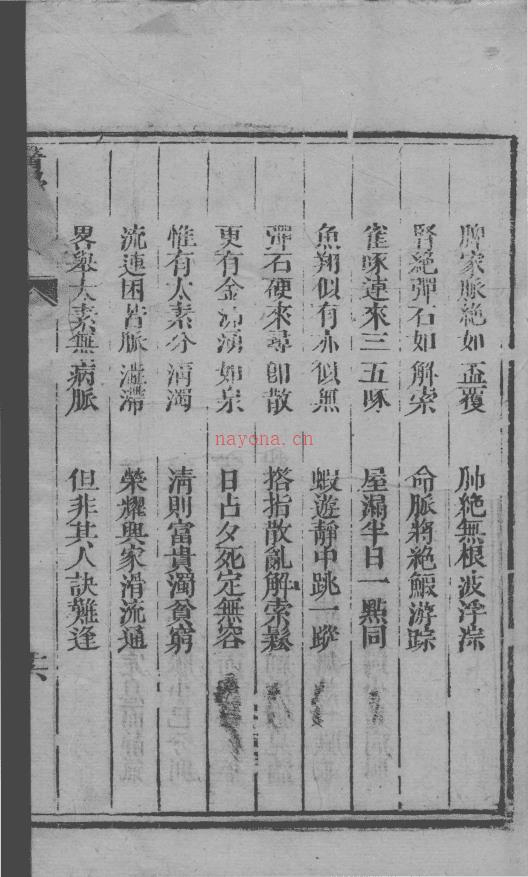 脾家脈絕如盃覆　肺絕無根波浮淙
腎絕彈石如解索　命脈將絕鰕游踪
雀啄連來三五啄　屋漏半日一點同
魚翔似有亦似無　蝦遊靜中跳一蹤
彈石硬來尋即散　搭指散亂解索鬆
更有金沸湧如泉　日占夕死定無容
惟有太素分淸濁　淸則富貴濁貧窮
流連困苦脈澁滯　榮耀興家滑流通
畧舉太素無病脈　但非其人訣難逢
六
nayona.cn